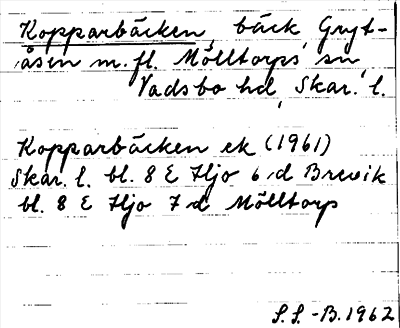 Kopparbäcken, bäck, Gryt-
åsen m.fl. Mölltorps sn,
Vadsbo hd, Skar. l.
Kopparbäcken ek (1961)
Skar. l. bl. 8 E Hjo 6 d Brevik
bl. 8 E Hjo 7 d Mölltorp
S.S.-B. 1962